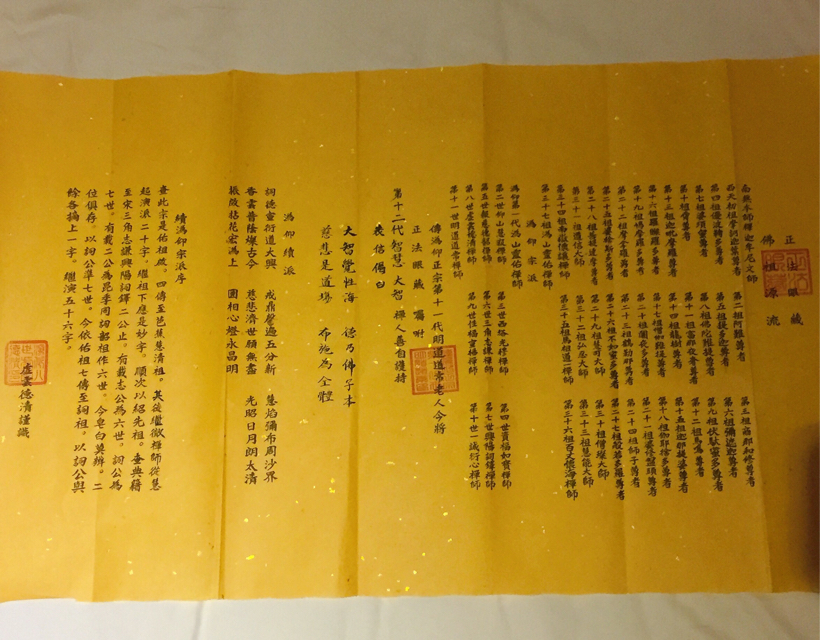 正法眼藏
佛祖源流
南無本師釋迦牟尼文佛
西天初祖摩訶迦葉尊者 第二祖阿難尊者 第三祖商那和修尊者
第四祖優波毱多尊者 第五祖提多迦尊者 第六祖彌遮迦尊者
第七祖婆須蜜尊者 第八祖佛陀難提尊者 第九祖伏馱蜜多尊者
第十祖脅尊者 第十一祖富那夜奢尊者 第十二祖馬鳴尊者
第十三祖迦毗摩羅尊者 第十四祖龍樹尊者 第十五祖迦那提婆尊者
第十六祖羅睺羅多尊者 第十七祖僧伽難提尊者 第十八祖伽耶舍多尊者
第十九祖鳩摩羅多尊者 第二十祖闍夜多尊者 第二十一祖婆修盤頭尊者
第二十二祖摩拏羅尊者 第二十三祖鶴勒那尊者 第二十四祖師子尊者
第二十五祖婆舍斯多尊者 第二十六祖不如蜜多尊者 第二十七祖般若多羅尊者
第二十八祖菩提達摩尊者 第二十九祖慧可大師 第三十祖僧璨大師
第三十一祖道信大師 第三十二祖弘忍大師 第三十三祖慧能大師
第三十四祖南嶽懷讓禪師 第三十五祖馬祖道一禪師 第三十六祖百丈懷海禪師
第三十七祖溈山靈佑禪師
溈仰宗派
溈仰第一代溈山靈佑禪師
第二世仰山慧寂禪師 第三世西塔光穆禪師 第四世資福如寶禪師
第五世報慈德韶禪師 第六世三角志謙禪師 第七世興陽詞鐸禪師
第八世虛雲德清禪師 第九世宣福禪師 第十世一誠衍心禪師
第十一世明道道常禪師
傳溈仰正宗第十一代明道道常老人今將
正法眼藏 囑咐
第十二代智慧大智禪人善自護持
表信偈曰
大智覺性海 德乃佛子本
慈悲是道場 布施為全體
溈仰續派
詞德宣衍道大興 戒鼎馨遍五分新 慧焰彌布周沙界
香雲普蔭燦古今 慈悲濟世願無盡 光昭日月朗太清
振啟拈花宏溈上 圓相心燈永昌明
續溈仰宗派序
查此宗是佑祖啟 四傳至芭蕉慧清祖 其後繼徹禪師從慧
起演派二十字 繼祖下應是妙字 順次以紹先祖 查典籍
至宋三角志謙興陽詞鐸二公止 有載志公為六世 詞公為
七世 有載二公為昆季同詞韶祖作六世 今皂白莫辨 二
位俱存 以詞公準七世 今依佑祖七傳至詞祖 以詞公與
餘各摘上一字 繼演五十六字
虛雲德清謹識